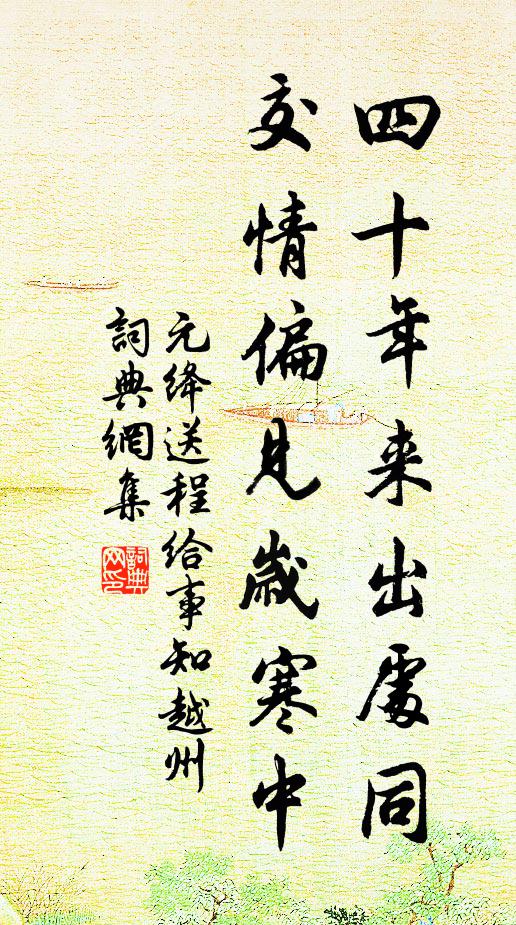 四十年来出處同
交情偏見歲寒中
元絳送程給事知越州
詞典網集
詞典网印